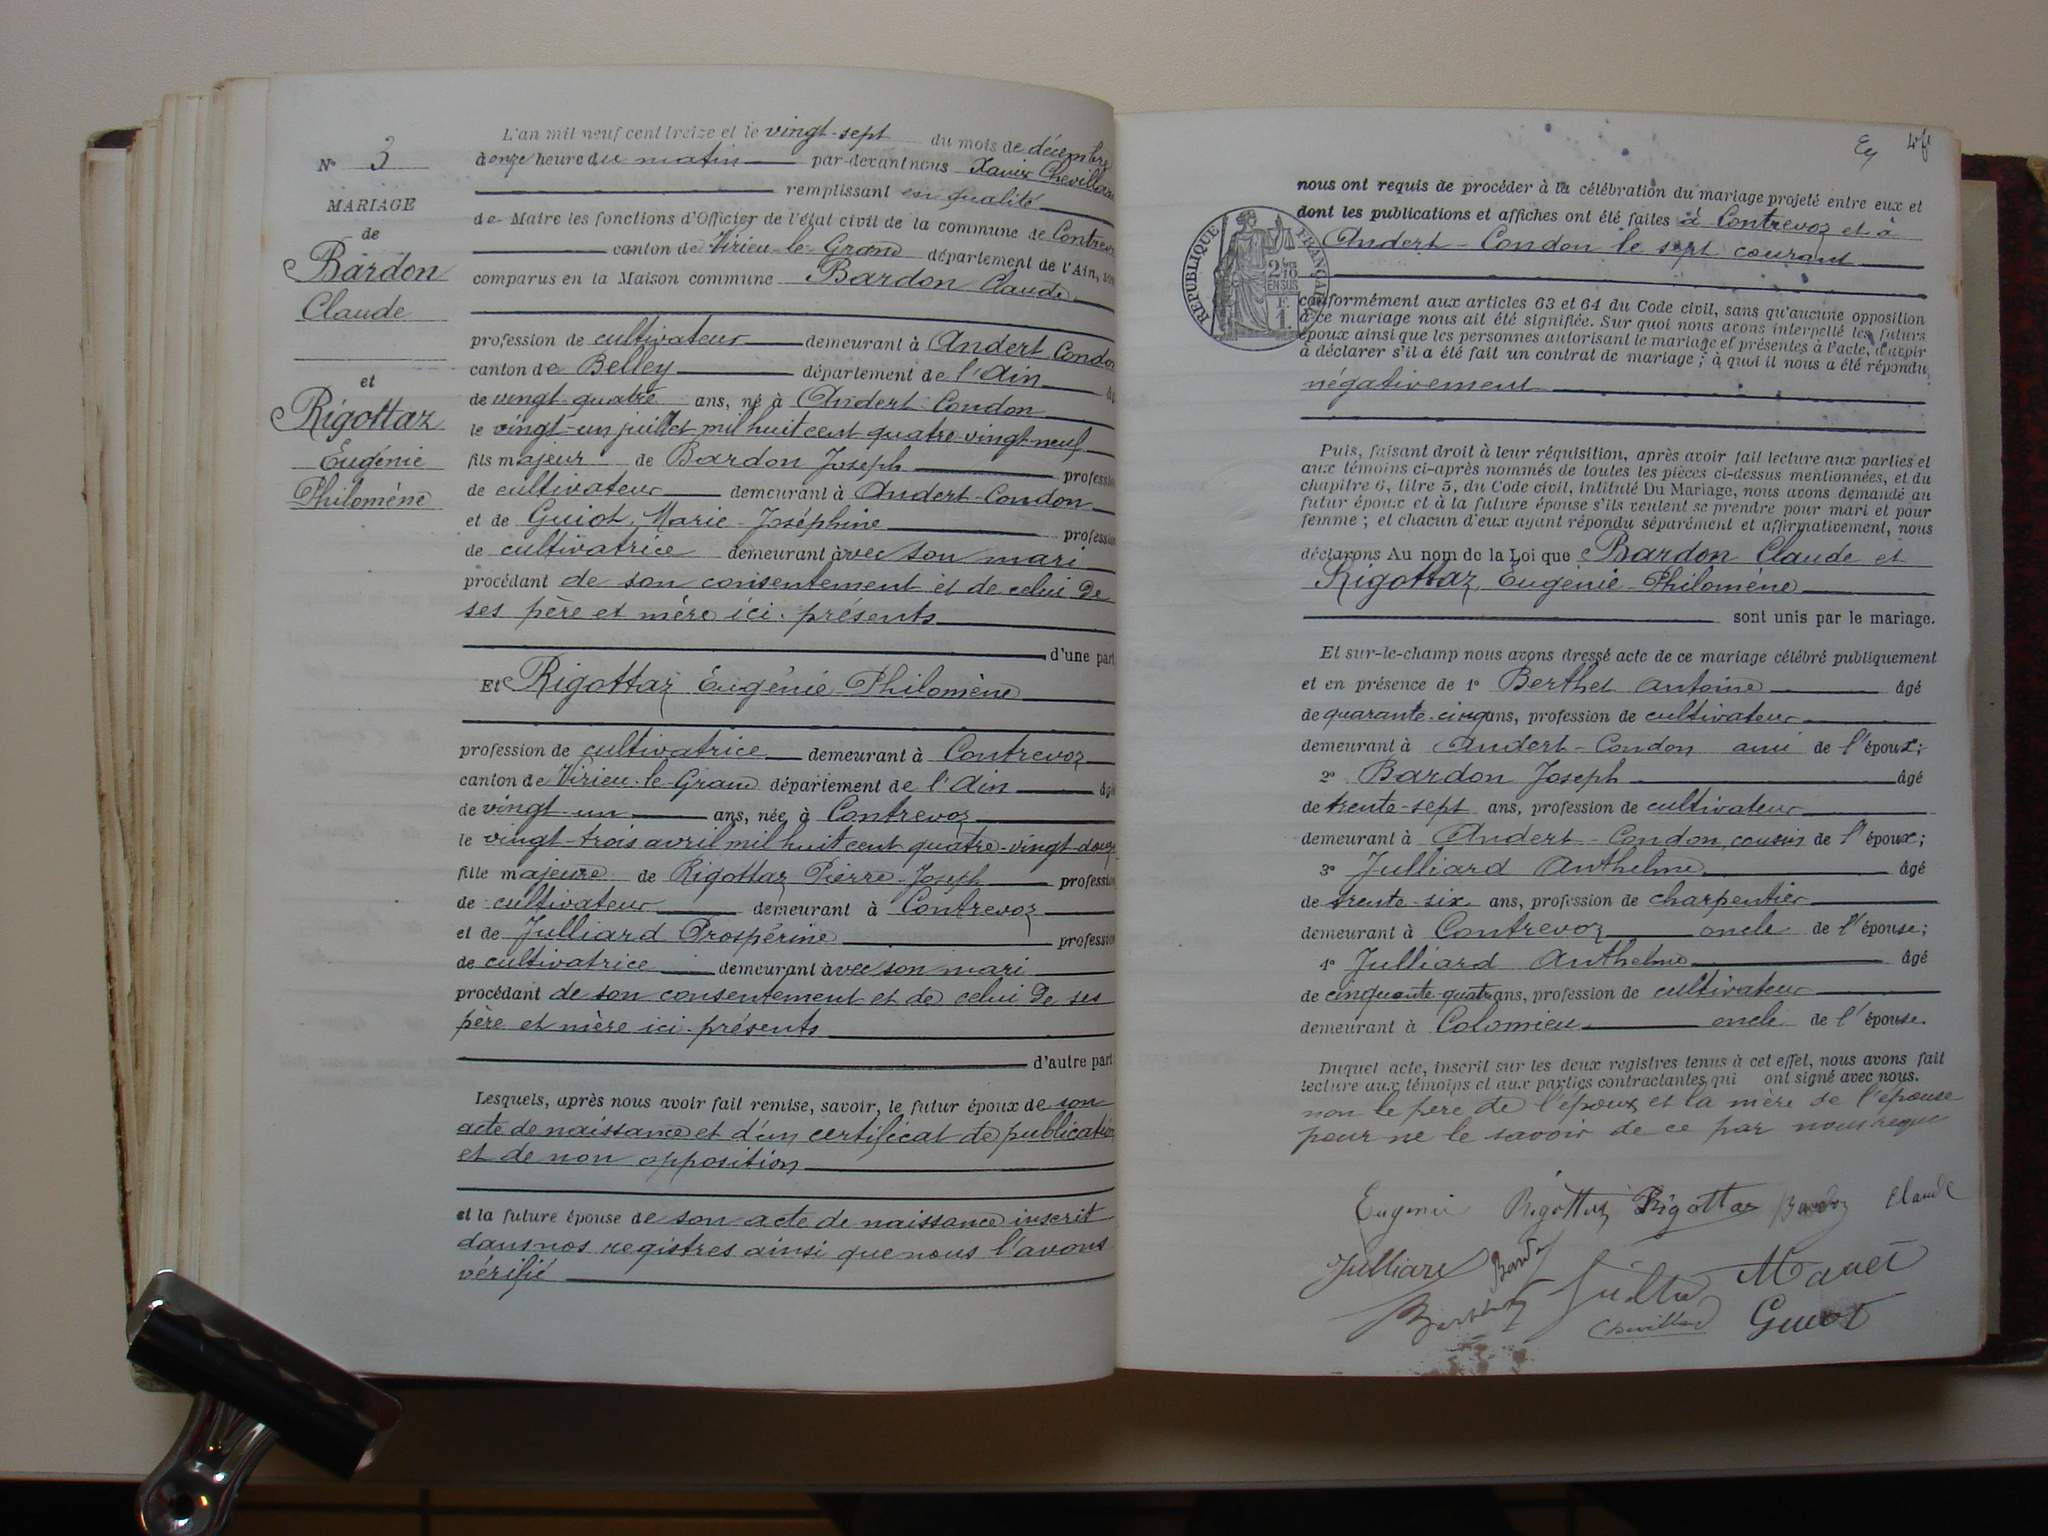 N° 3
MARIAGE
de
Bardon
Claude
et
Rigottaz
Eugénie
Philomène
L'an mil neuf cent treize et le vingt-sept du mois de décembre
à onze heure du matin par-devant nous Xavier Chevillard
remplissant en qualité
de Maire les fonctions d'Officier de l'état civil de la commune de Contrevoz
canton de Virieu-le-Grand département de l'Ain, son
comparus en la Maison commune Bardon Claude
profession de cultivateur demeurant à Andert Condon
canton de Belley département de l'Ain âg
de vingt-quatre ans, né à Andert-Condon
le vingt-un juillet mil huit cent quatre-vingt-neuf
fils majeur de Bardon Joseph profession
de cultivateur demeurant à Andert-Condon
et de Guiot, Marie-Joséphine profession
de cultivatrice demeurant avec son mari
procédant de son consentement et de celui de
ses père et mère ici présents
d'une part
Et Rigottaz Eugénie Philomène
profession de cultivatrice demeurant à Contrevoz
canton de Virieu-le-Grand département de l'Ain âgé
de vingt-un ans, née à Contrevoz
le vingt-trois avril mil huit cent quatre-vingt-douze
fille majeure de Rigottaz Pierre-Joseph profession
de cultivateur demeurant à Contrevoz
et de Julliard Prospérine profession
de cultivatrice demeurant avec son mari
procédant de son consentement et de celui de ses
père et mère ici présents
d'autre part
Lesquels, après nous avoir fait remise, savoir, le futur époux de son
acte de naissance et d'un certificat de publication
et de non opposition
et la future épouse de son acte de naissance inscrit
dans nos registres ainsi que nous l'avons
vérifié
nous ont requis de procéder à la célébration du mariage projeté entre eux et
dont les publications et affiches ont été faites à Contrevoz et à
Andert-Condon le sept courant
RÉPUBLIQUE FRANÇAISE
2/10 EN SUS
F. 1.
conformément aux articles 63 et 64 du Code civil, sans qu'aucune opposition
à ce mariage nous ait été signifiée. Sur quoi nous avons interpellé les futurs
époux ainsi que les personnes autorisant le mariage et présentes à l'acte, d'avoir
à déclarer s'il a été fait un contrat de mariage ; à quoi il nous a été répondu
négativement
Puis, faisant droit à leur réquisition, après avoir fait lecture aux parties et
aux témoins ci-après nommés de toutes les pièces ci-dessus mentionnées, et du
chapitre 6, titre 5, du Code civil, intitulé Du Mariage, nous avons demandé au
futur époux et à la future épouse s'ils veulent se prendre pour mari et pour
femme ; et chacun d'eux ayant répondu séparément et affirmativement, nous
déclarons Au nom de la Loi que Bardon Claude et
Rigottaz, Eugénie-Philomène
sont unis par le mariage.
Et sur-le-champ nous avons dressé acte de ce mariage célébré publiquement
et en présence de 1° Berthet Antoine âgé
de quarante-cinq ans, profession de cultivateur
demeurant à Andert-Condon ami de l'époux ;
2° Bardon Joseph âgé
de trente-sept ans, profession de cultivateur
demeurant à Andert-Condon, cousin de l'époux ;
3° Julliard Anthelme âgé
de trente-six ans, profession de charpentier
demeurant à Contrevoz oncle de l'épouse ;
4° Julliard Anthelme âgé
de cinquante-quatre ans, profession de cultivateur
demeurant à Colomieu oncle de l'épouse.
Duquel acte, inscrit sur les deux registres tenus à cet effet, nous avons fait
lecture aux témoins et aux parties contractantes qui ont signé avec nous.
non le père de l'époux et la mère de l'épouse
pour ne le savoir de ce par nous requis
Eugenie Rigottaz Rigottaz Bardon Claude
Julliard Bardon
Berthet Chevillard Guiot